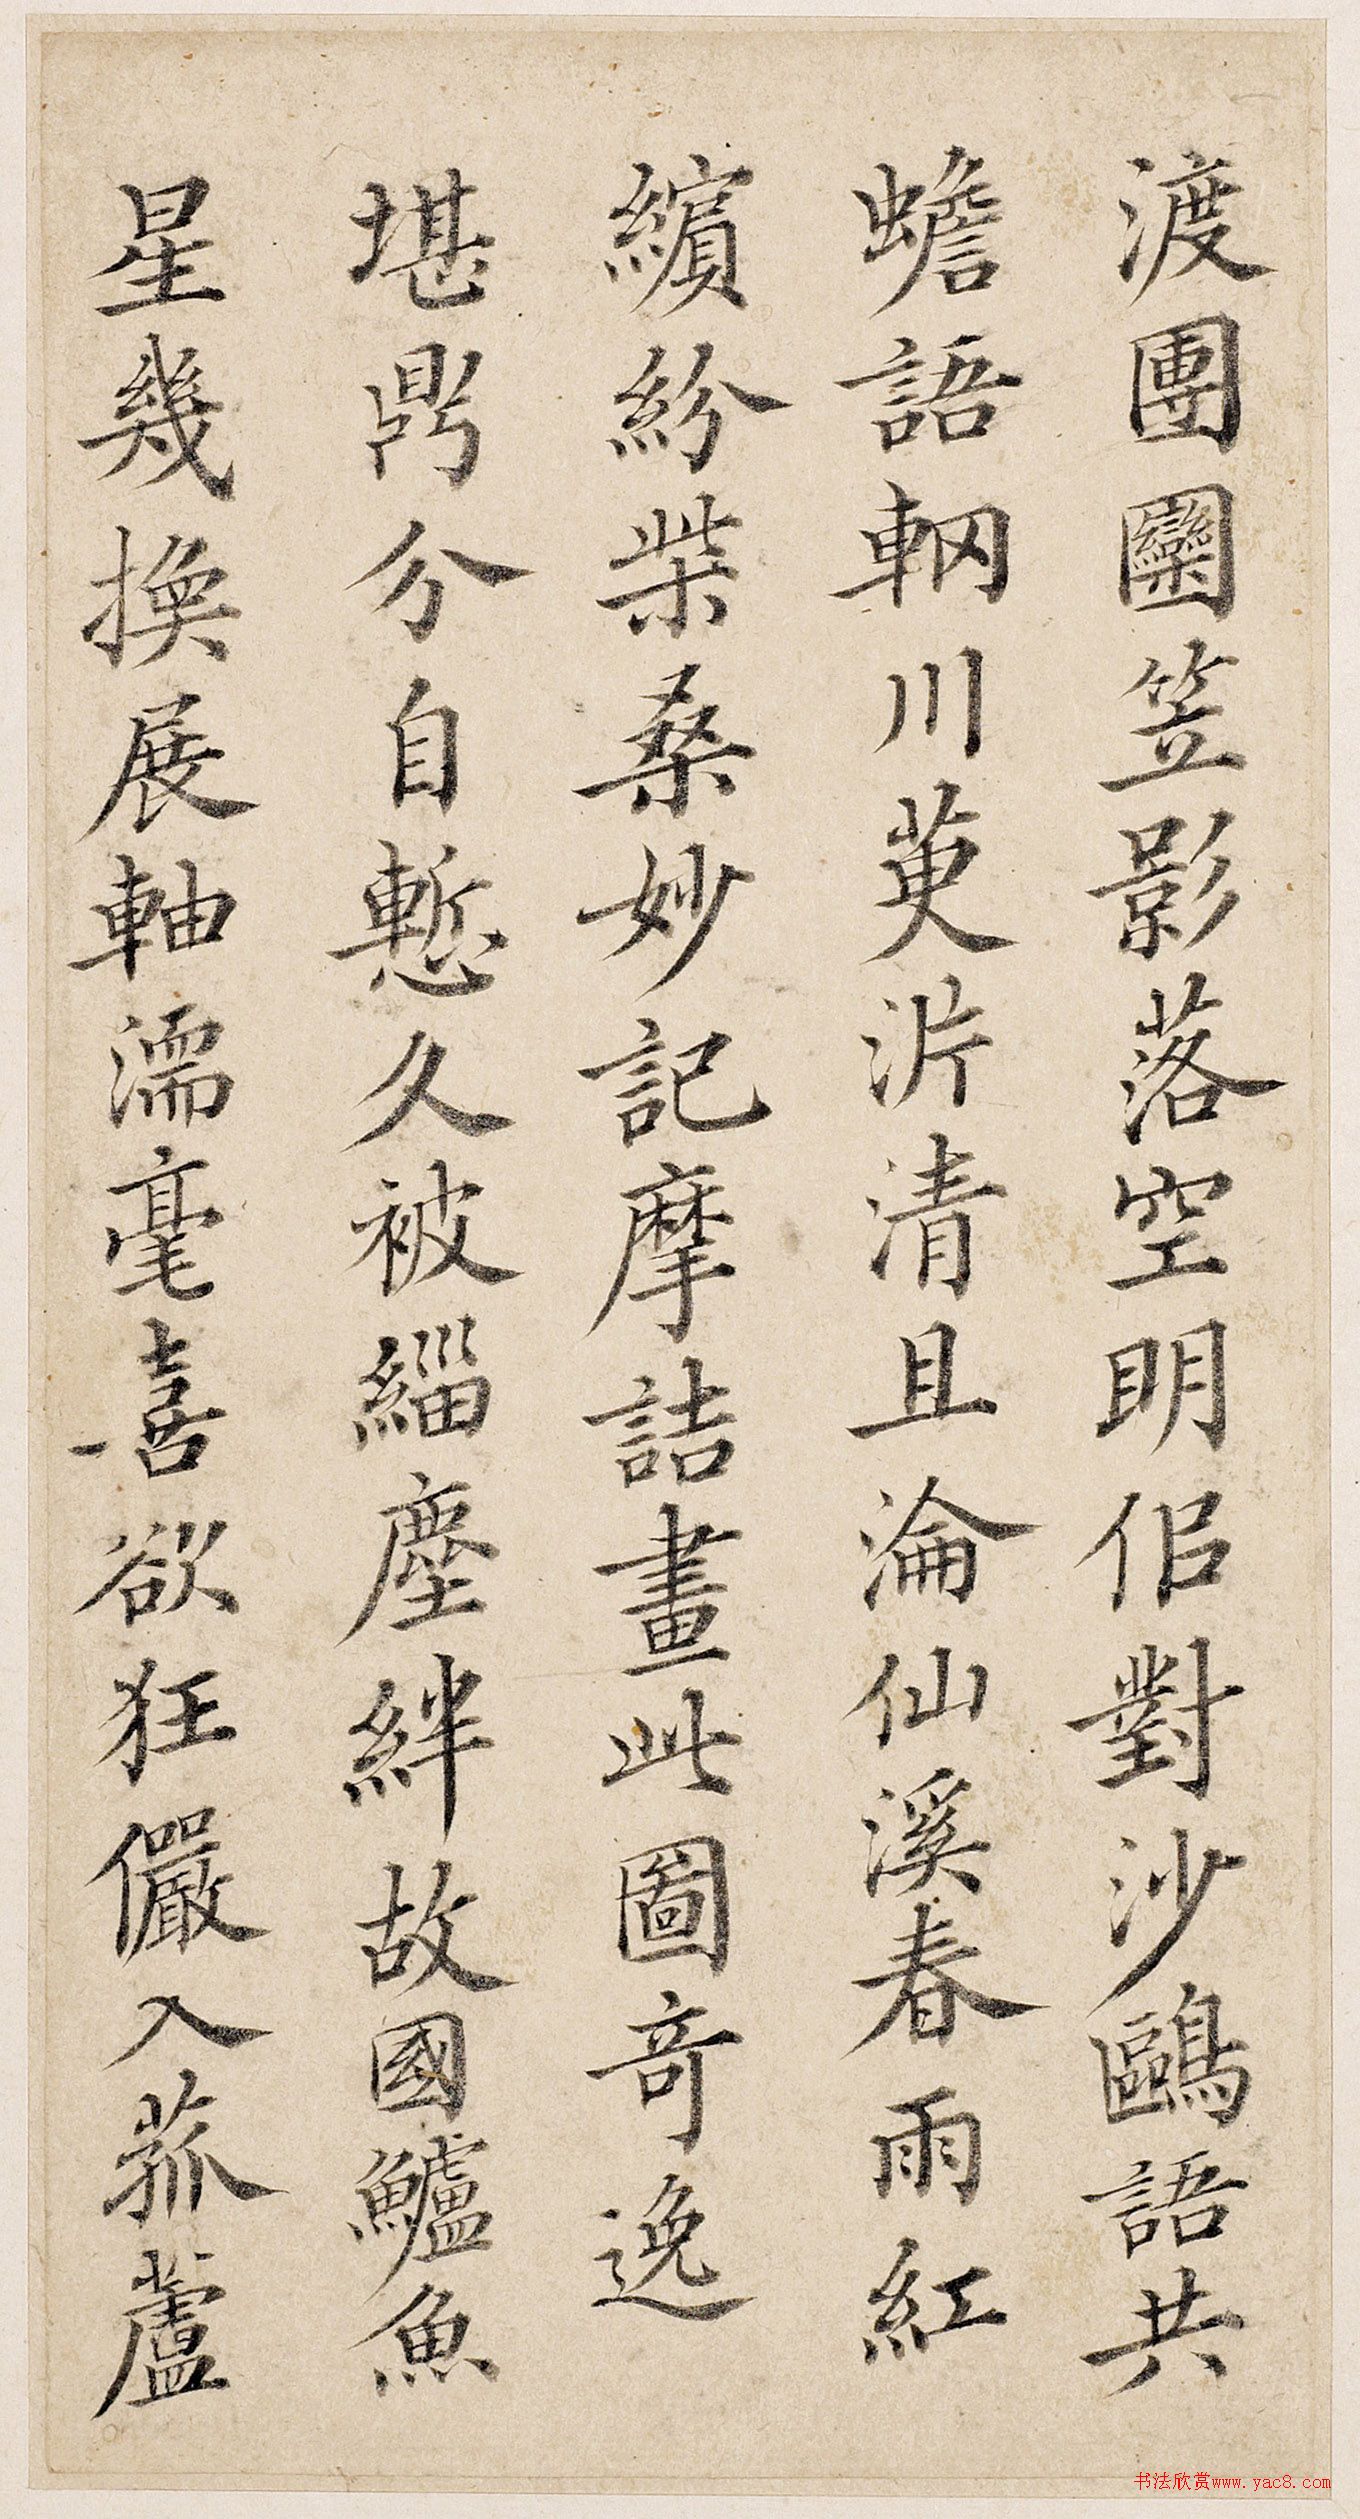 渡團圞笠影落空明侣對沙鷗語共
蟾語輞川茰沜清且淪仙溪春雨紅
繽紛柴桑妙記摩詰畫此圖奇逸
堪鼎分自慙久被緇塵絆故國鱸魚
星幾換展軸濡毫喜欲狂儼入菰蘆
书法欣赏www.yac8.com